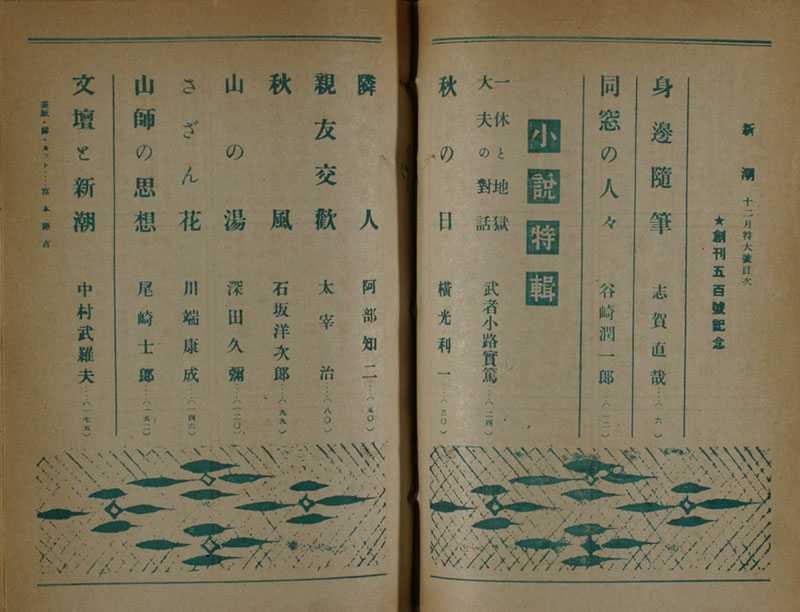 新潮 十二月特大號目次
★創刊五百號記念
身邊隨筆 志賀直哉…(六)
同窓の人々 谷崎潤一郎…(一二)
小說特輯
一休と地獄
大夫の對話 武者小路實篤…(二四)
秋の日 橫光利一…(三〇)
隣人 阿部知二…(五〇)
親友交歡 太宰治…(八〇)
秋風 石坂洋次郎…(九九)
山の湯 深田久彌…(一二〇)
さざん花 川端康成…(一四六)
山師の思想 尾崎士郎…(一五二)
文壇と新潮 中村武羅夫…(一七五)